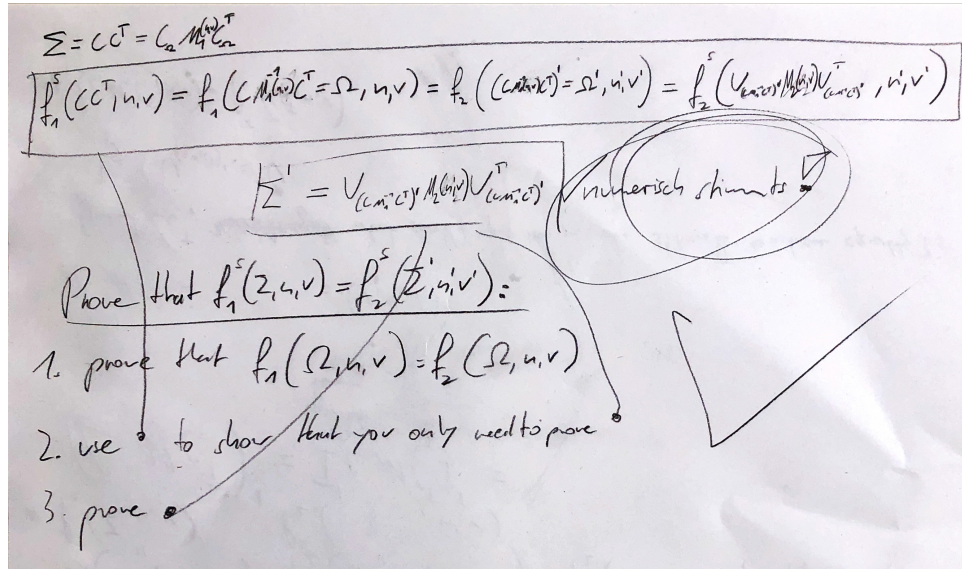 Σ = CCᵀ = C_Ω M₁(n,v) C_Ωᵀ
f₁ˢ(CCᵀ, n, v) = f₁(C M₁⁻¹(n,v) Cᵀ = Ω, n, v) = f₂((C M₁⁻¹(n,v) Cᵀ)' = Ω', n', v') = f₂ˢ(U M₂(n',v') Uᵀ, n', v')
Σ' = U M₂(n',v') Uᵀ
numerisch stimmts
Prove that f₁ˢ(Σ, n, v) = f₂ˢ(Σ', n', v'):
1. prove that f₁(Ω, n, v) = f₂(Ω, n, v)
2. use to show that you only need to prove
3. prove